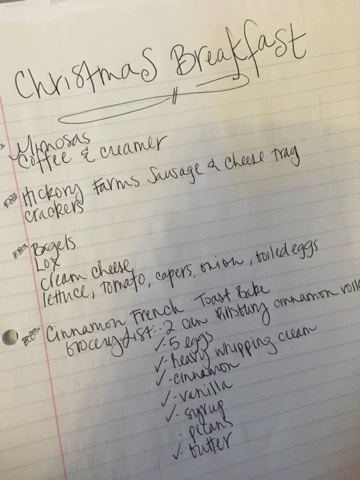 Christmas Breakfast
Mimosas
Coffee & creamer
Hickory Farms Sausage & Cheese Tray
crackers
Bagels
Lox
cream cheese
lettuce, tomato, capers, onion, boiled eggs
Cinnamon French Toast Bake
Grocery List: 2 can Pillsbury cinnamon rolls
✓ 5 eggs
✓ heavy whipping cream
✓ cinnamon
✓ vanilla
✓ syrup
pecans
✓ butter